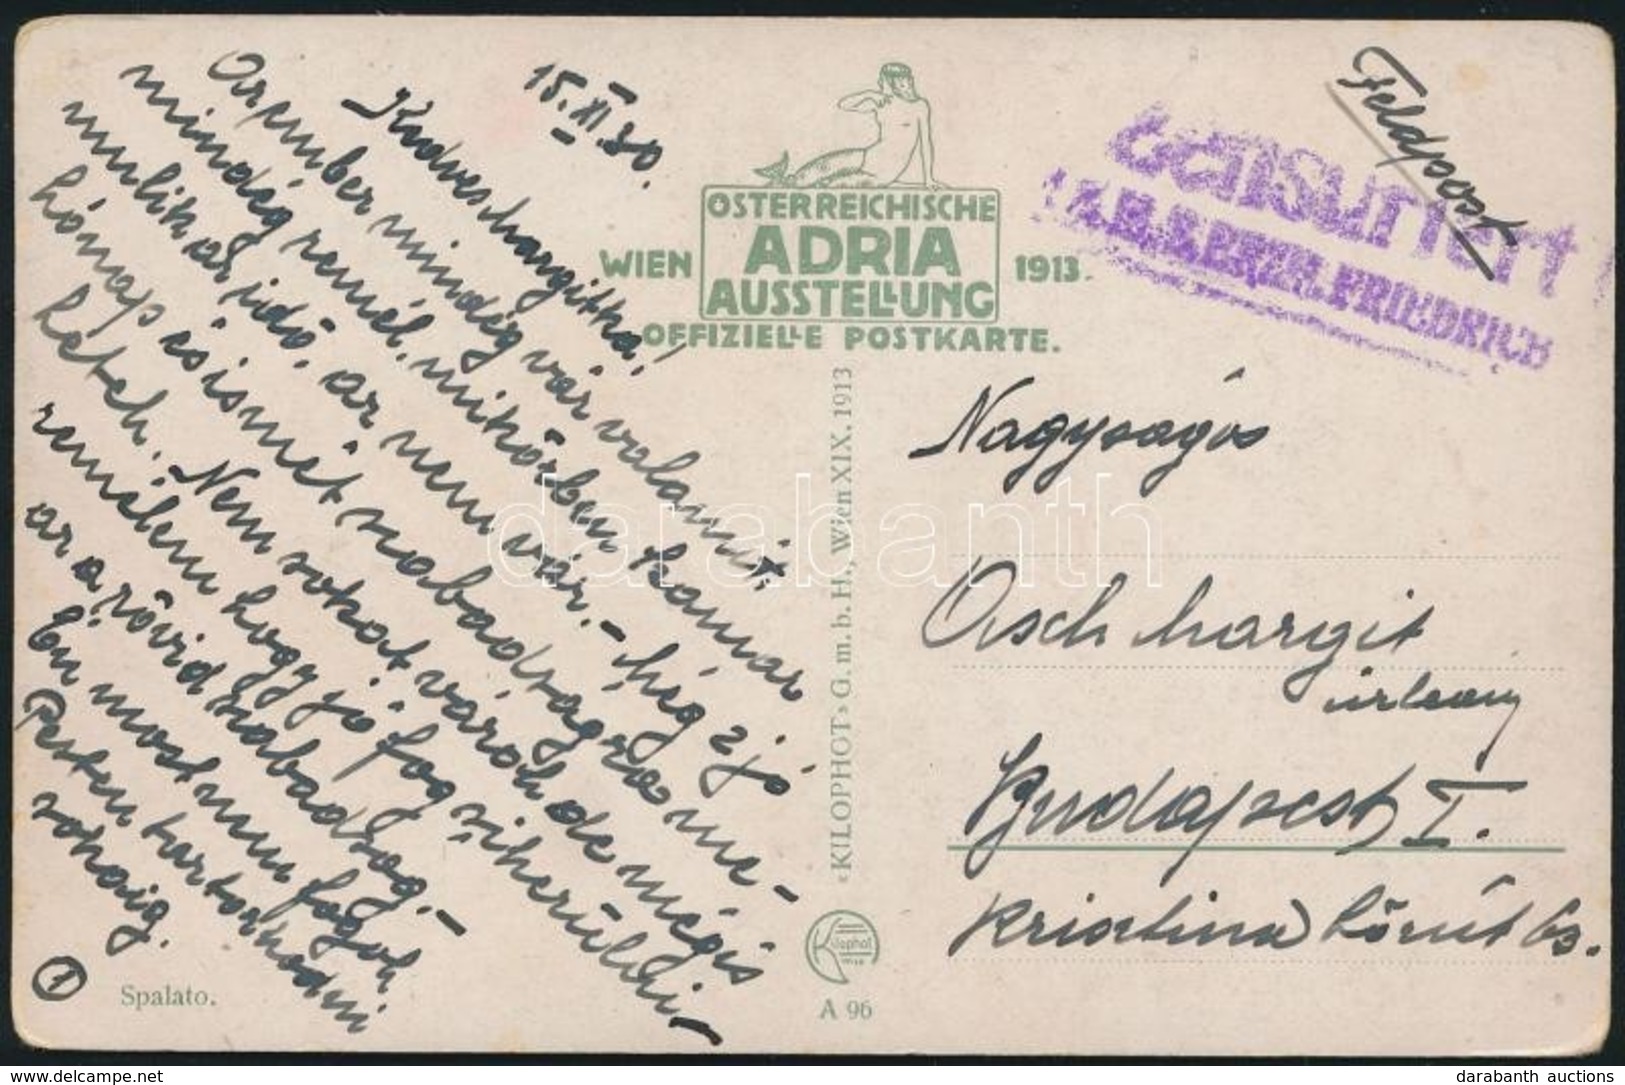 15. XI 30.
Kedves hargitka!
Az ember mindég vár valamit.
mindég remél, miközben hamar
mulik az idő, az nem vár. – Még 2 jó
hónap és ismét szabadságra me-
hetek. Nem sokat várok de mégis
remélem hogy jó fog sikerülni
az a rövid szabadság. –
Én most nem fogok
Pesten tartozkodni
sokaig.
1
Spalato.
ÖSTERREICHISCHE
WIEN ADRIA 1913.
AUSSTELLUNG
OFFIZIELLE POSTKARTE.
«KILOPHOT» G. m. b. H., Wien XIX. 1913
Kilophot
WIEN
A 96
Feldpost
Zensuriert
S.M.S. ERZH. FRIEDRICH
Nagyságos
Osch hargit
úrleany
Budapest I.
Krisztina körút 63.
darabanth
www.delcampe.net
darabanth auctions